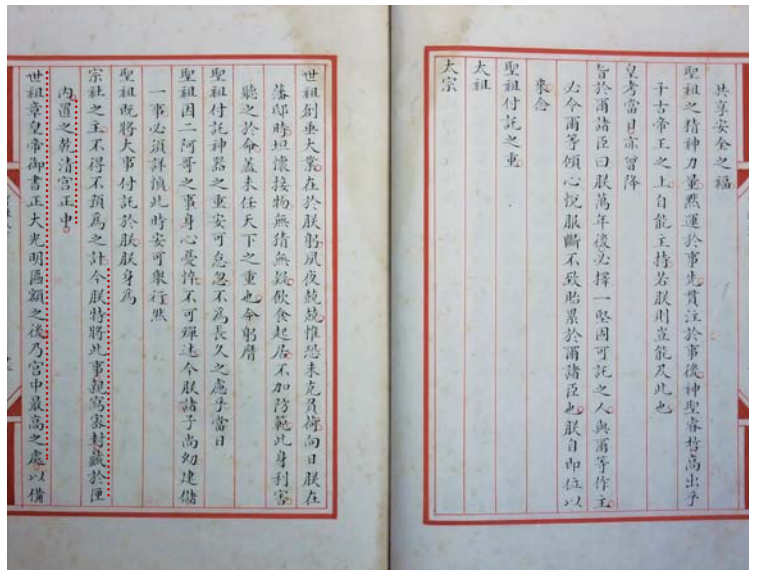 共享安全之福
聖祖之精神力量默運於事先貫注於事後神聖睿哲高出乎
千古帝王之上自能主持若朕則豈能及此也
皇考當日亦曾降
旨於爾諸臣曰朕萬年後必擇一堅固可託之人與爾等作主
必令爾等傾心悅服斷不致貽累於爾諸臣也朕自即位以
來念
聖祖付託之重
太祖
太宗
世祖創垂大業在於朕躬夙夜兢兢惟恐未克負荷向日朕在
藩邸時坦懷接物無猜無疑飲食起居不加防範此身利害
聽之於命蓋未任天下之重也今躬膺
聖祖付託神器之重安可怠忽不為長久之慮乎當日
聖祖因二阿哥之事身心憂悴不可殫述今朕諸子尚幼建儲
一事必須詳慎此時安可舉行然
聖祖既將大事付託於朕朕身為
宗社之主不得不預為之計今朕特將此事親寫密封藏於匣
內置之乾清宮正中
世祖章皇帝御書正大光明匾額之後乃宮中最高之處以備